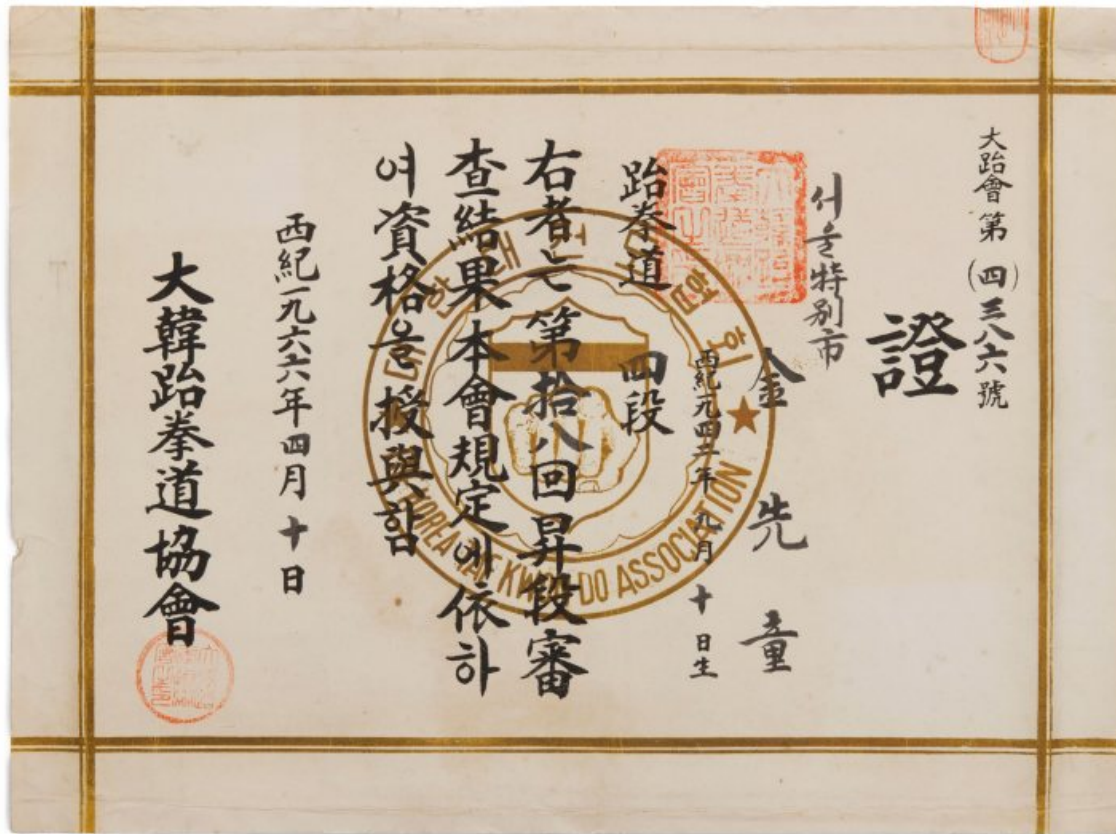 大跆會第(四三八六號
證
서울特別市
金先童
西紀一九四二年九月十日生
跆拳道 四段
右者는 第拾八回昇段審
査結果本會規定에依하
여資格을授與함
西紀一九六六年四月十日
大韓跆拳道協會
KOREA TAE KWON DO ASSOCIATION